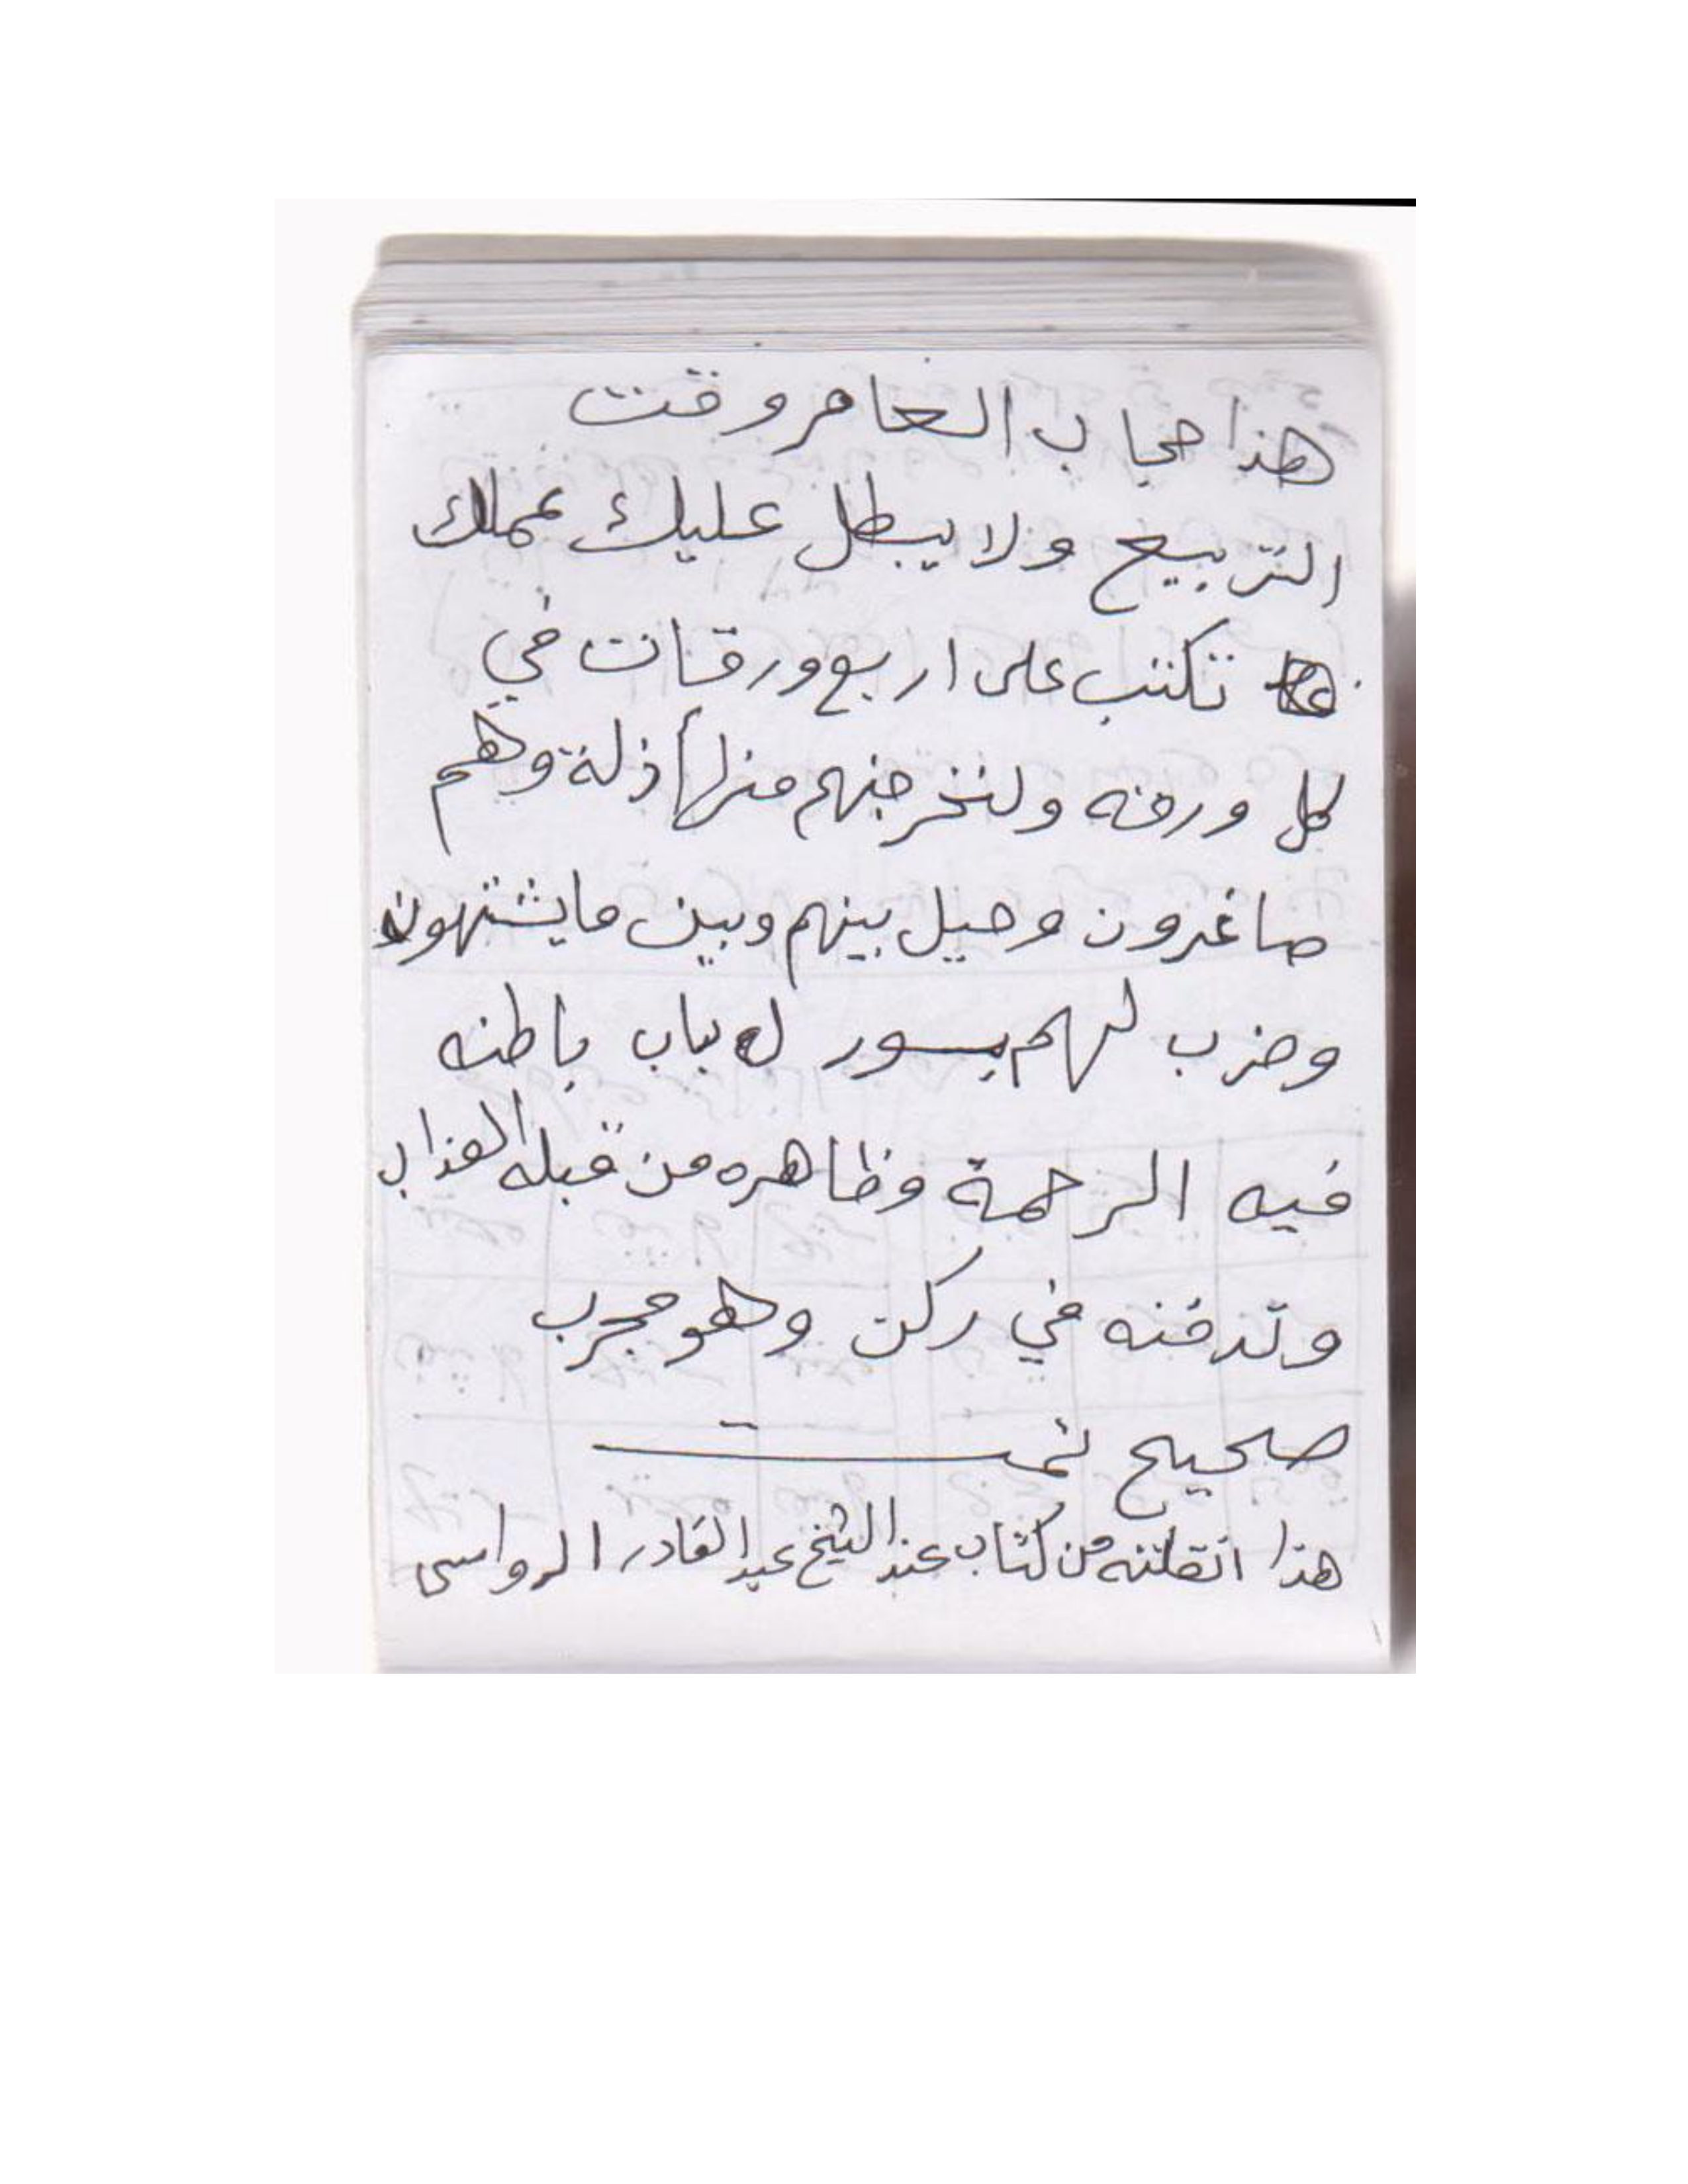 هذا حجاب العامر وقت
التربيع ولا يبطل عليك عملك
تكتب على اربع ورقات في
كل ورقه ولنخرجنهم منها أذلة وهم
صاغرون وحيل بينهم وبين ما يشتهون
وضرب لهم بسور له باب باطنه
فيه الرحمة وظاهره من قبله العذاب
وتدفنه في ركن وهو مجرب
صحيح تمت
هذا انقلته من كتاب عند الشيخ عبد القادر الرواسى